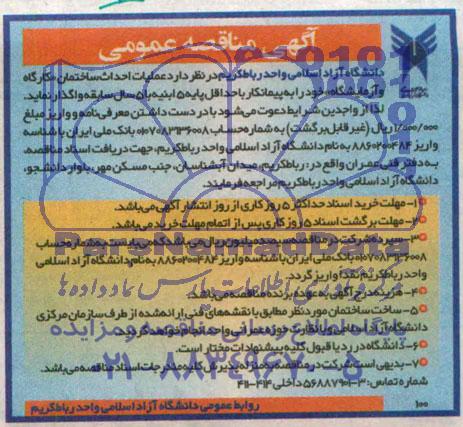 آگهی مناقصه عمومی
دانشگاه آزاد اسلامی واحد رباط‌کریم در نظر دارد عملیات احداث ساختمان کارگاه
و آزمایشگاه خود را به پیمانکار با حداقل پایه ۵ ابنیه با ۵ سال سابقه واگذار نماید.
لذا از واجدین شرایط دعوت می‌شود با در دست داشتن معرفی‌نامه و واریز مبلغ
۱/۵۰۰/۰۰۰ ریال (غیر قابل برگشت) به شماره حساب ۰۱۰۷۰۸۳۱۳۶۰۰۸ بانک ملی ایران با شناسه
واریز ۸۸۶۰۲۰۰۴۸۴ به نام دانشگاه آزاد اسلامی واحد رباط‌کریم، جهت دریافت اسناد مناقصه،
به دفتر فنی عمران واقع در: رباط‌کریم، میدان آبشناسان، جنب مسکن مهر، بلوار دانشجو،
دانشگاه آزاد اسلامی واحد رباط‌کریم مراجعه فرمایند.
۱- مهلت خرید اسناد حداکثر ۵ روز کاری از روز انتشار آگهی می‌باشد.
۲- مهلت برگشت اسناد ۵ روز کاری پس از اتمام مهلت خرید می‌باشد.
۳- سپرده شرکت در مناقصه سیصد میلیون ریال می‌باشد که می‌بایست به شماره حساب
۰۱۰۷۰۸۳۱۳۶۰۰۸ بانک ملی ایران با شناسه واریز ۸۸۶۰۲۰۰۴۸۴ به نام دانشگاه آزاد اسلامی
واحد رباط‌کریم نقدا واریز گردد.
۴- هزینه درج آگهی به عهده برنده مناقصه می‌باشد.
۵- ساخت ساختمان مورد نظر مطابق با نقشه‌های فنی ارائه شده از طرف سازمان مرکزی
دانشگاه آزاد اسلامی با نظارت حوزه عمرانی واحد انجام خواهد گردید.
۶- دانشگاه در رد یا قبول کلیه پیشنهادات مختار است.
۷- بدیهی است شرکت در مناقصه به منزله پذیرش کلیه مندرجات اسناد مناقصه می‌باشد.
شماره تماس: ۳-۵۶۸۸۷۹۰۱ داخلی ۴۱۴-۴۱۱
روابط عمومی دانشگاه آزاد اسلامی واحد رباط‌کریم
۱۰۰
۰۲۱-۸۸۳۴۹۶۷۰-۵